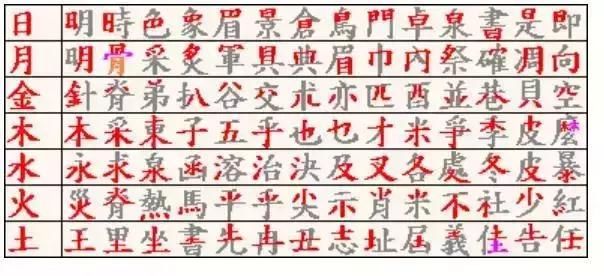 日 明 時 色 象 眉 景 倉 鳥 門 卓 泉 書 是 即
月 明 骨 采 炙 軍 具 典 眉 巾 內 祭 確 凋 向
金 針 脊 弟 扒 谷 交 朮 亦 匹 酉 並 巷 貝 空
木 本 采 東 子 五 乎 也 乜 才 米 爭 季 皮 麼
水 永 求 泉 函 溶 治 決 及 叉 各 處 冬 皮 暴
火 災 脊 熱 馬 平 乎 尖 示 肖 米 不 社 少 紅
土 王 里 坐 書 先 冉 丑 志 址 屆 義 住 告 任